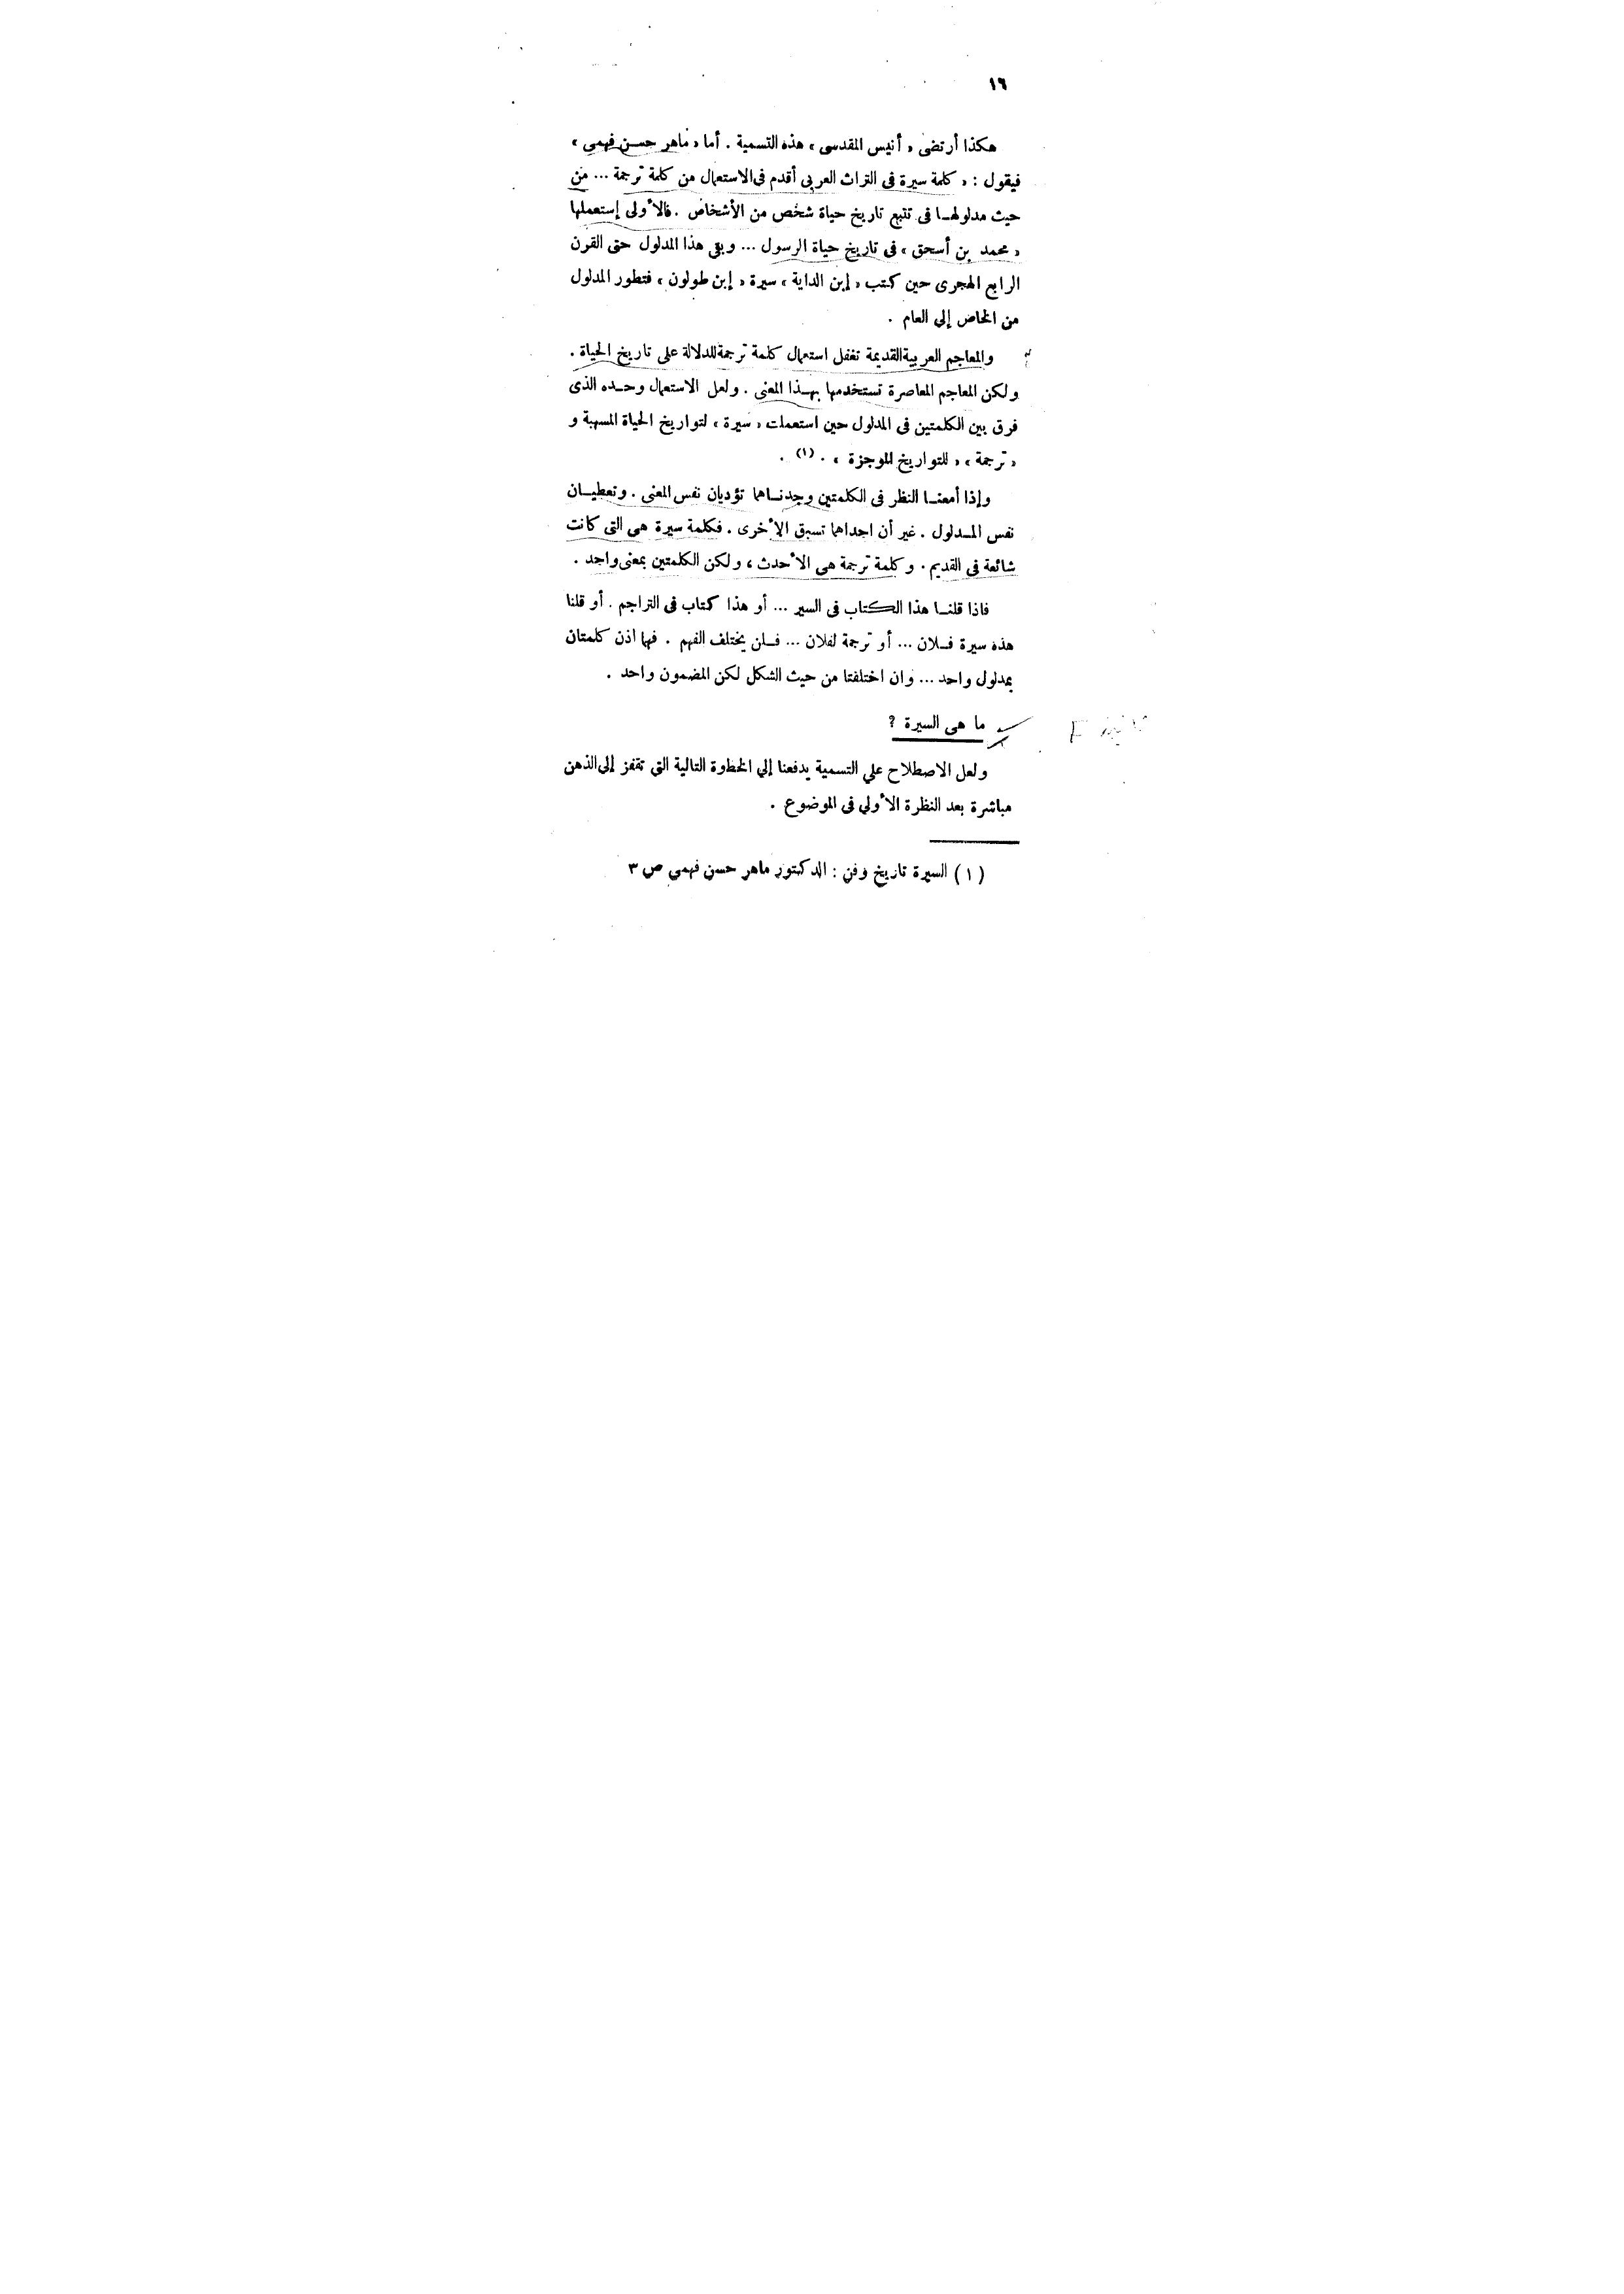 ١٦
هكذا أرتضى « أنيس المقدسى » هذه التسمية . أما « ماهر حسـن فهمي »
فيقول : « كلمة سيرة فى التراث العربى أقدم فى الاستعمال من كلمة ترجمة ... من
حيث مدلولهـا فى تتبع تاريخ حياة شخص من الأشخاص . فالأولى إستعملها
« محمد بن أسحق » فى تاريخ حياة الرسول ... وبقى هذا المدلول حتى القرن
الرابع الهجرى حين كتب « إبن الداية » سيرة « إبن طولون » فتطور المدلول
من الخاص إلى العام .
والمعاجم العربية القديمة تغفل استعمال كلمة ترجمة للدلالة على تاريخ الحياة .
ولكن المعاجم المعاصرة تستخدمها بهـذا المعنى . ولعل الاستعمال وحـده الذى
فرق بين الكلمتين فى المدلول حين استعملت « سيرة » لتواريخ الحياة المسهبة و
« ترجمة » « للتواريخ الموجزة » . (١) .
وإذا أمعنـا النظر فى الكلمتين وجدنـاهما تؤديان نفس المعنى . وتعطيـان
نفس المـدلول . غير أن احداهما تسبق الأخرى . فكلمة سيرة هى التى كانت
شائعة فى القديم . وكلمة ترجمة هى الأحدث ، ولكن الكلمتين بمعنى واحد .
فاذا قلنـا هذا الكتاب فى السير ... أو هذا كتاب فى التراجم . أو قلنا
هذه سيرة فـلان ... أو ترجمة لفلان ... فـلن يختلف الفهم . فهما اذن كلمتان
بمدلول واحد ... وان اختلفتا من حيث الشكل لكن المضمون واحد .
ما هى السيرة ؟
ولعل الاصطلاح علي التسمية يدفعنا إلي الخطوة التالية التى تقفز إلى الذهن
مباشرة بعد النظرة الأولي فى الموضوع .
(١) السيرة تاريخ وفن : الدكتور ماهر حسن فهمي ص ٣